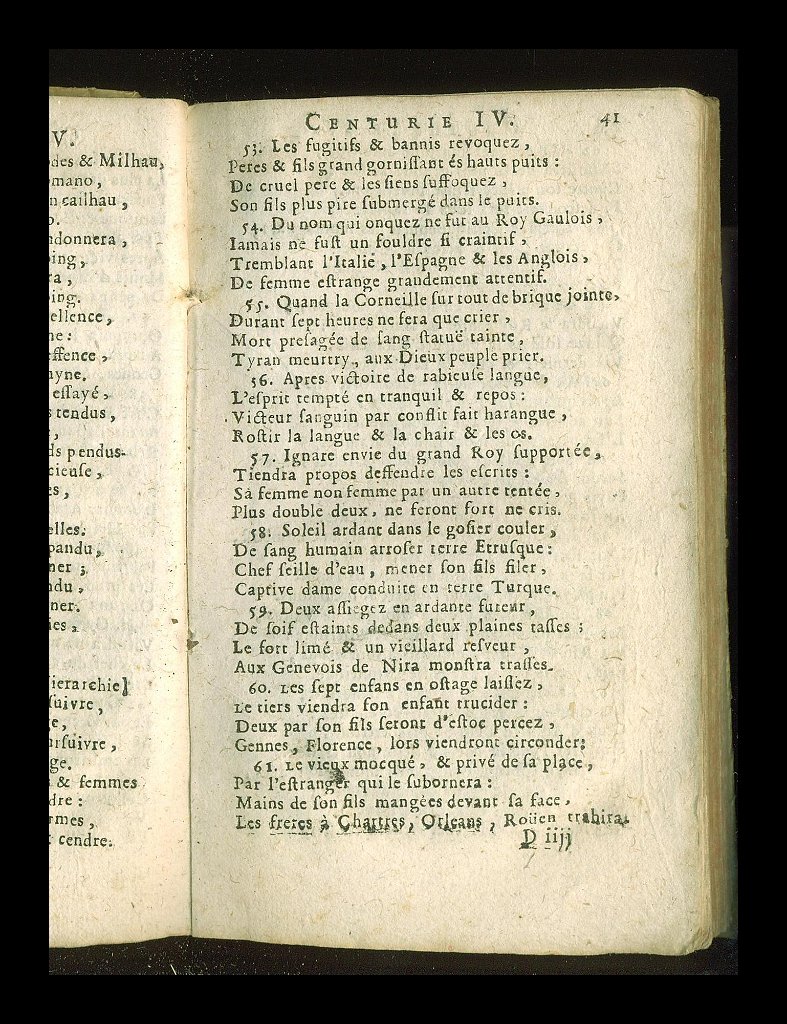 V.
des & Milhau,
omano,
n cailhau,
o.
ndonnera,
oing,
ra,
oing.
ellence,
ne:
effence,
uyne.
essayé,
s tendus,
,
ds pendus.
cieuse,
es,
elles.
pandu,
ner;
ndu,
ner.
ies,
ierarchie]
suivre,
re,
ursuivre,
ge.
& femmes
dre:
rmes,
cendre.
CENTURIE IV. 41
53. Les fugitifs & bannis revoquez,
Peres & fils grand gornissant és hauts puits:
De cruel pere & les siens suffoquez,
Son fils plus pire submergé dans le puits.
54. Du nom qui onquez ne fut au Roy Gaulois,
Iamais ne fust un fouldre si craintif,
Tremblant l'Italie, l'Espagne & les Anglois,
De femme estrange grandement attentif.
55. Quand la Corneille sur tout de brique jointe,
Durant sept heures ne fera que crier,
Mort presagée de sang statuë tainte,
Tyran meurtry, aux Dieux peuple prier.
56. Apres victoire de rabieuse langue,
L'esprit tempté en tranquil & repos:
Victeur sanguin par conflit fait harangue,
Rostir la langue & la chair & les os.
57. Ignare envie du grand Roy supportée,
Tiendra propos deffendre les escrits:
Sa femme non femme par un autre tentée,
Plus double deux, ne feront fort ne cris.
58. Soleil ardant dans le gosier couler,
De sang humain arroser terre Etrusque:
Chef seille d'eau, mener son fils filer,
Captive dame conduite en terre Turque.
59. Deux assiegez en ardante fureur,
De soif estaints dedans deux plaines tasses;
Le fort limé & un vieillard resveur,
Aux Genevois de Nira monstra trasses.
60. Les sept enfans en ostage laissez,
Le tiers viendra son enfant trucider:
Deux par son fils seront d'estoc percez,
Gennes, Florence, lors viendront circonder;
61. Le vieux mocqué, & privé de sa place,
Par l'estranger qui le subornera:
Mains de son fils mangées devant sa face,
Les freres à Chartres, Orleans, Roüen trahira.
D iiij